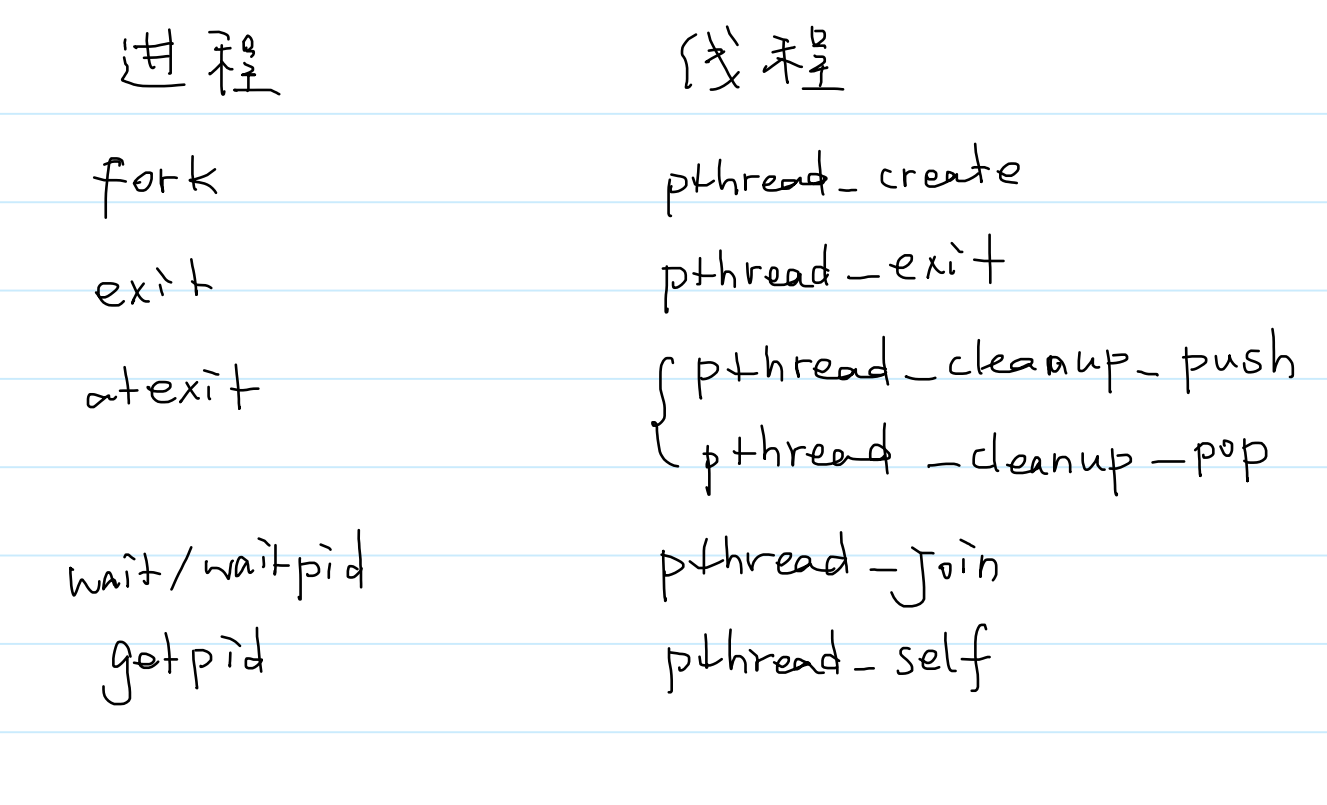 进程 线程
fork pthread_create
exit pthread_exit
atexit pthread_cleanup_push
pthread_cleanup_pop
wait/waitpid pthread_join
getpid pthread_self